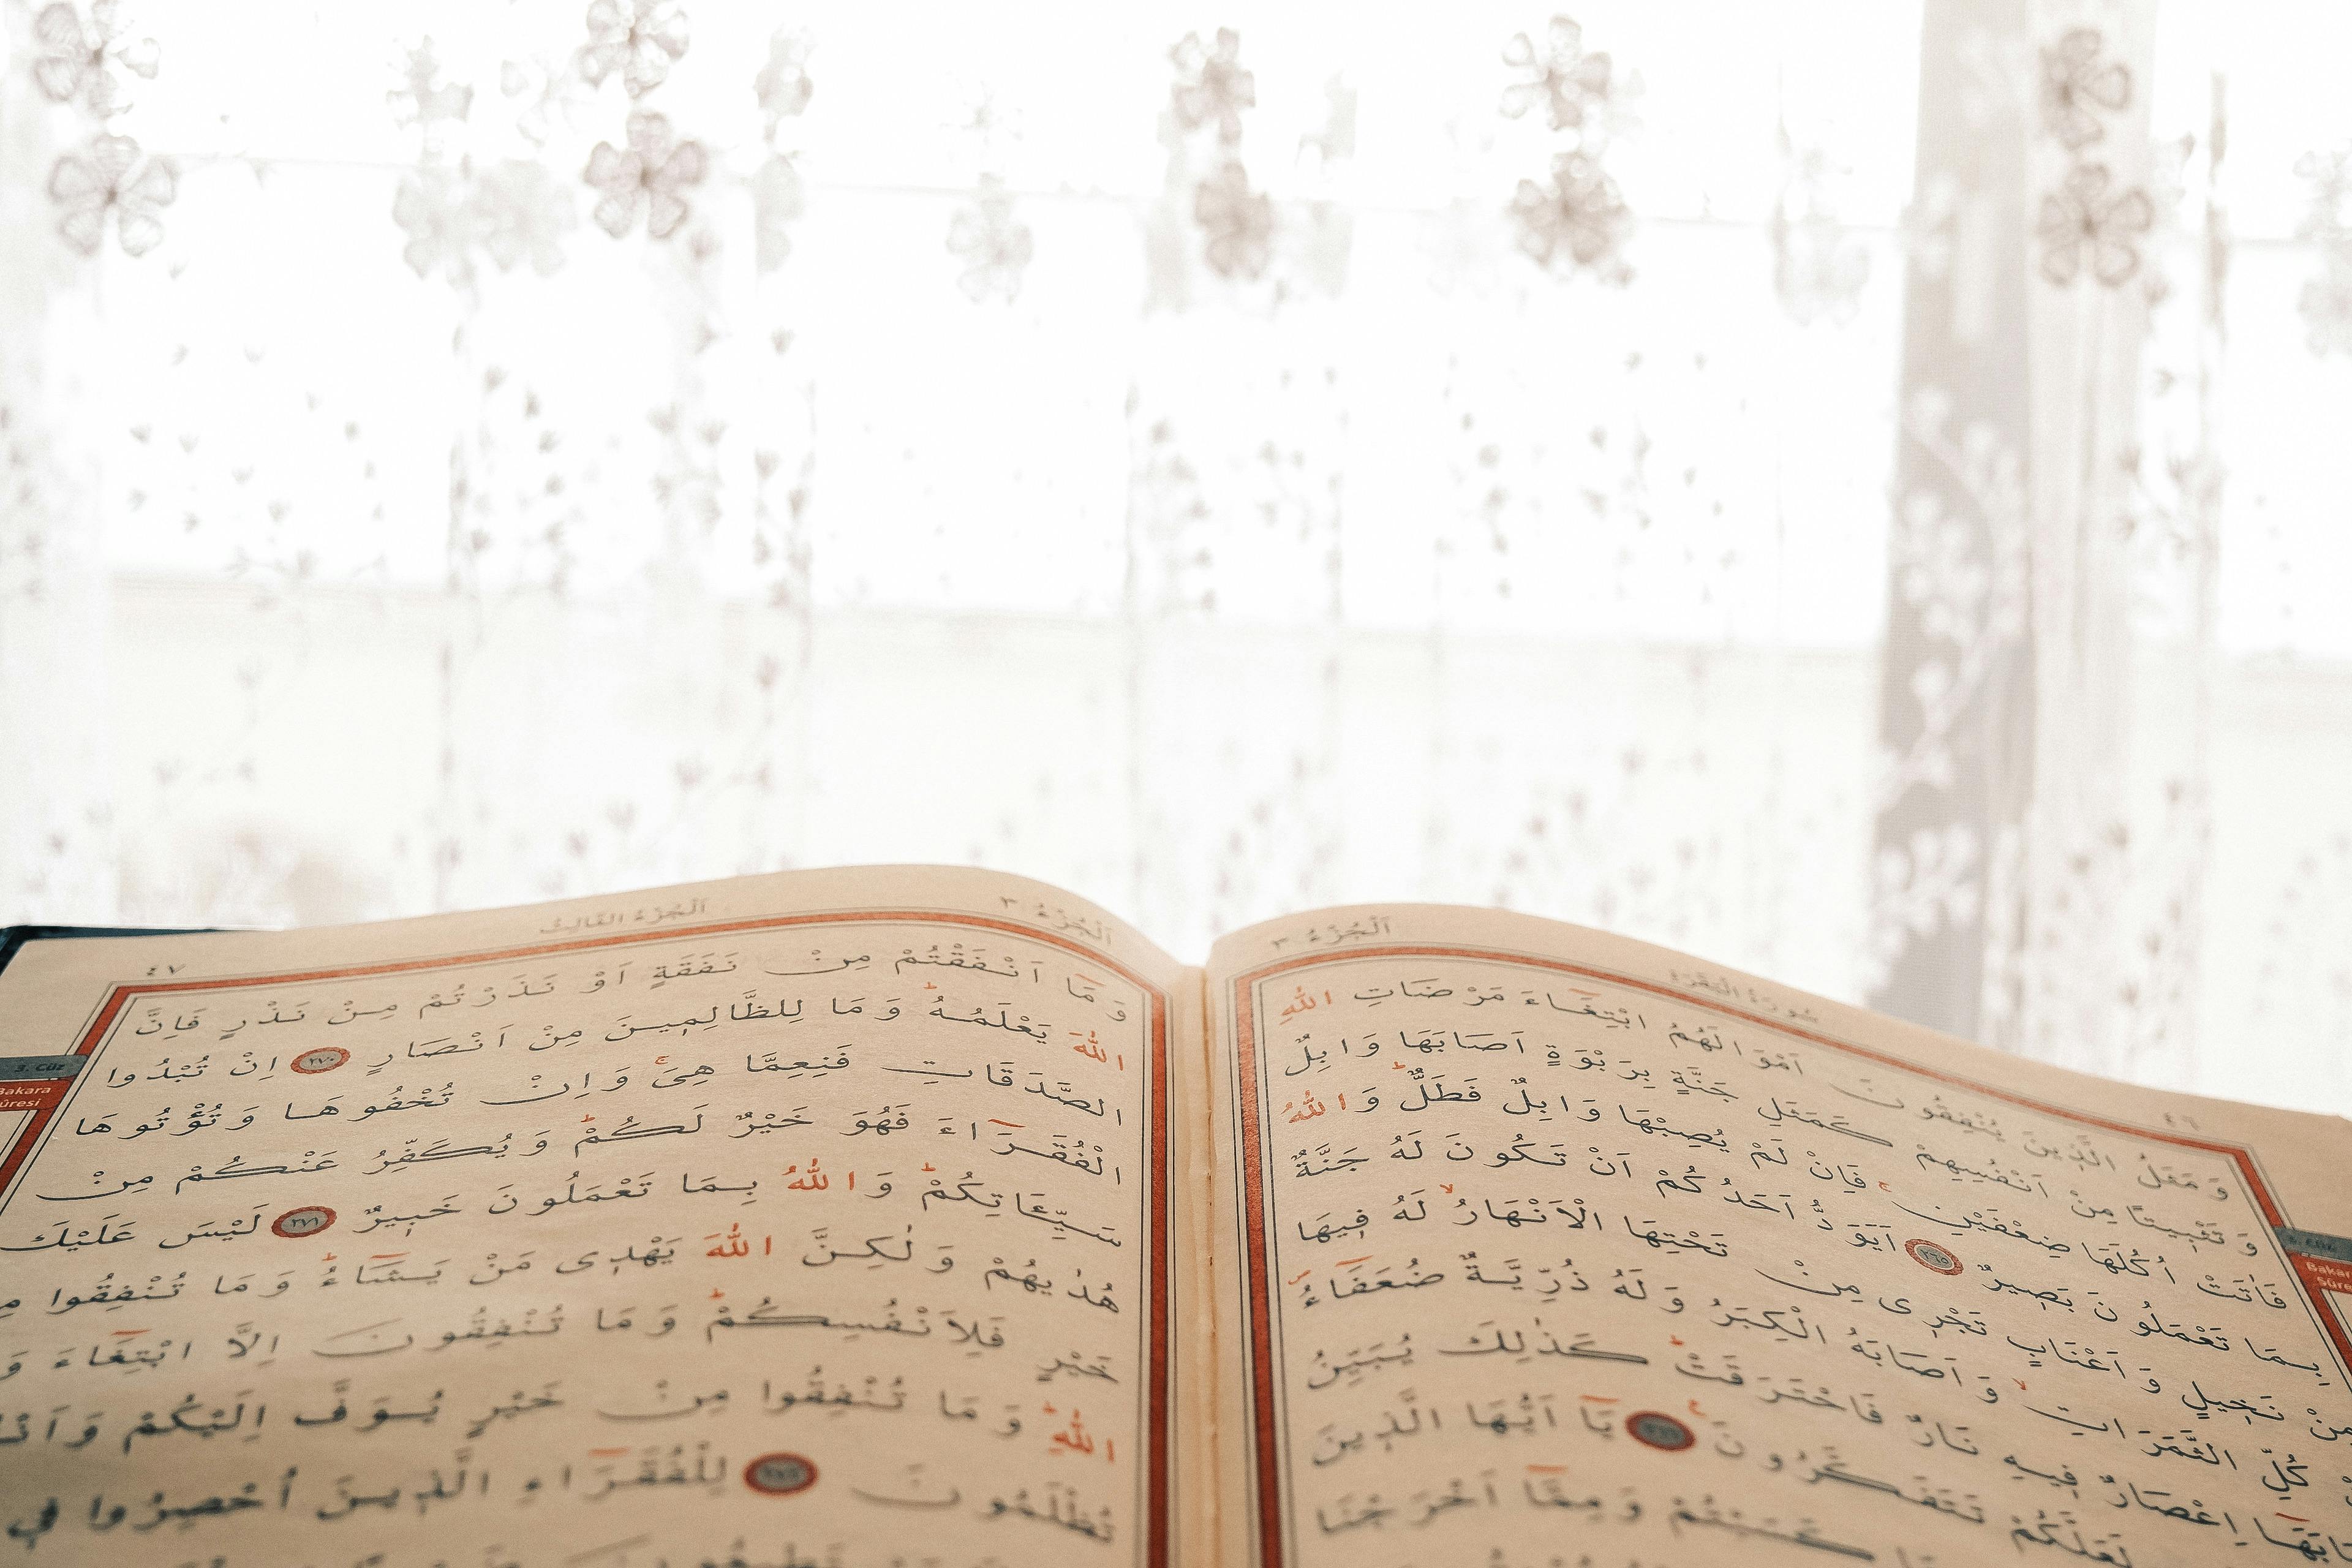 ٤٦ سُورَةُ الْبَقَرَةِ اَلْجُزْءُ ٣
وَمَثَلُ الَّذِينَ يُنْفِقُونَ اَمْوَالَهُمُ ابْتِغَاءَ مَرْضَاتِ اللّٰهِ
وَتَثْبِيتًا مِنْ اَنْفُسِهِمْ كَمَثَلِ جَنَّةٍ بِرَبْوَةٍ اَصَابَهَا وَابِلٌ
فَاٰتَتْ اُكُلَهَا ضِعْفَيْنِ فَاِنْ لَمْ يُصِبْهَا وَابِلٌ فَطَلٌّ وَاللّٰهُ
بِمَا تَعْمَلُونَ بَصِيرٌ ٢٦٥ اَيَوَدُّ اَحَدُكُمْ اَنْ تَكُونَ لَهُ جَنَّةٌ
مِنْ نَخِيلٍ وَاَعْنَابٍ تَجْرِى مِنْ تَحْتِهَا الْاَنْهَارُ لَهُ فِيهَا
كُلِّ الثَّمَرَاتِ وَاَصَابَهُ الْكِبَرُ وَلَهُ ذُرِّيَّةٌ ضُعَفَاءُ
اِعْصَارٌ فِيهِ نَارٌ فَاحْتَرَقَتْ كَذٰلِكَ يُبَيِّنُ
لَعَلَّكُمْ تَتَفَكَّرُونَ ٢٦٦ يَا اَيُّهَا الَّذِينَ
كَسَبْتُمْ وَمِمَّا اَخْرَجْنَا
اَلْجُزْءُ ٣ اَلْجُزْءُ الثَّالِثُ ٤٧
وَمَا اَنْفَقْتُمْ مِنْ نَفَقَةٍ اَوْ نَذَرْتُمْ مِنْ نَذْرٍ فَاِنَّ
اللّٰهَ يَعْلَمُهُ وَمَا لِلظَّالِمِينَ مِنْ اَنْصَارٍ ٢٧٠ اِنْ تُبْدُوا
الصَّدَقَاتِ فَنِعِمَّا هِىَ وَاِنْ تُخْفُوهَا وَتُؤْتُوهَا
الْفُقَرَاءَ فَهُوَ خَيْرٌ لَكُمْ وَيُكَفِّرُ عَنْكُمْ مِنْ
سَيِّـَٔاتِكُمْ وَاللّٰهُ بِمَا تَعْمَلُونَ خَبِيرٌ ٢٧١ لَيْسَ عَلَيْكَ
هُدٰيهُمْ وَلٰكِنَّ اللّٰهَ يَهْدِى مَنْ يَشَاءُ وَمَا تُنْفِقُوا مِنْ
خَيْرٍ فَلِاَنْفُسِكُمْ وَمَا تُنْفِقُونَ اِلَّا ابْتِغَاءَ وَ
اللّٰهِ وَمَا تُنْفِقُوا مِنْ خَيْرٍ يُوَفَّ اِلَيْكُمْ وَاَنْـ
تُظْلَمُونَ ٢٧٢ لِلْفُقَرَاءِ الَّذِينَ اُحْصِرُوا فِى
3. Cüz
Bakara
Sûresi